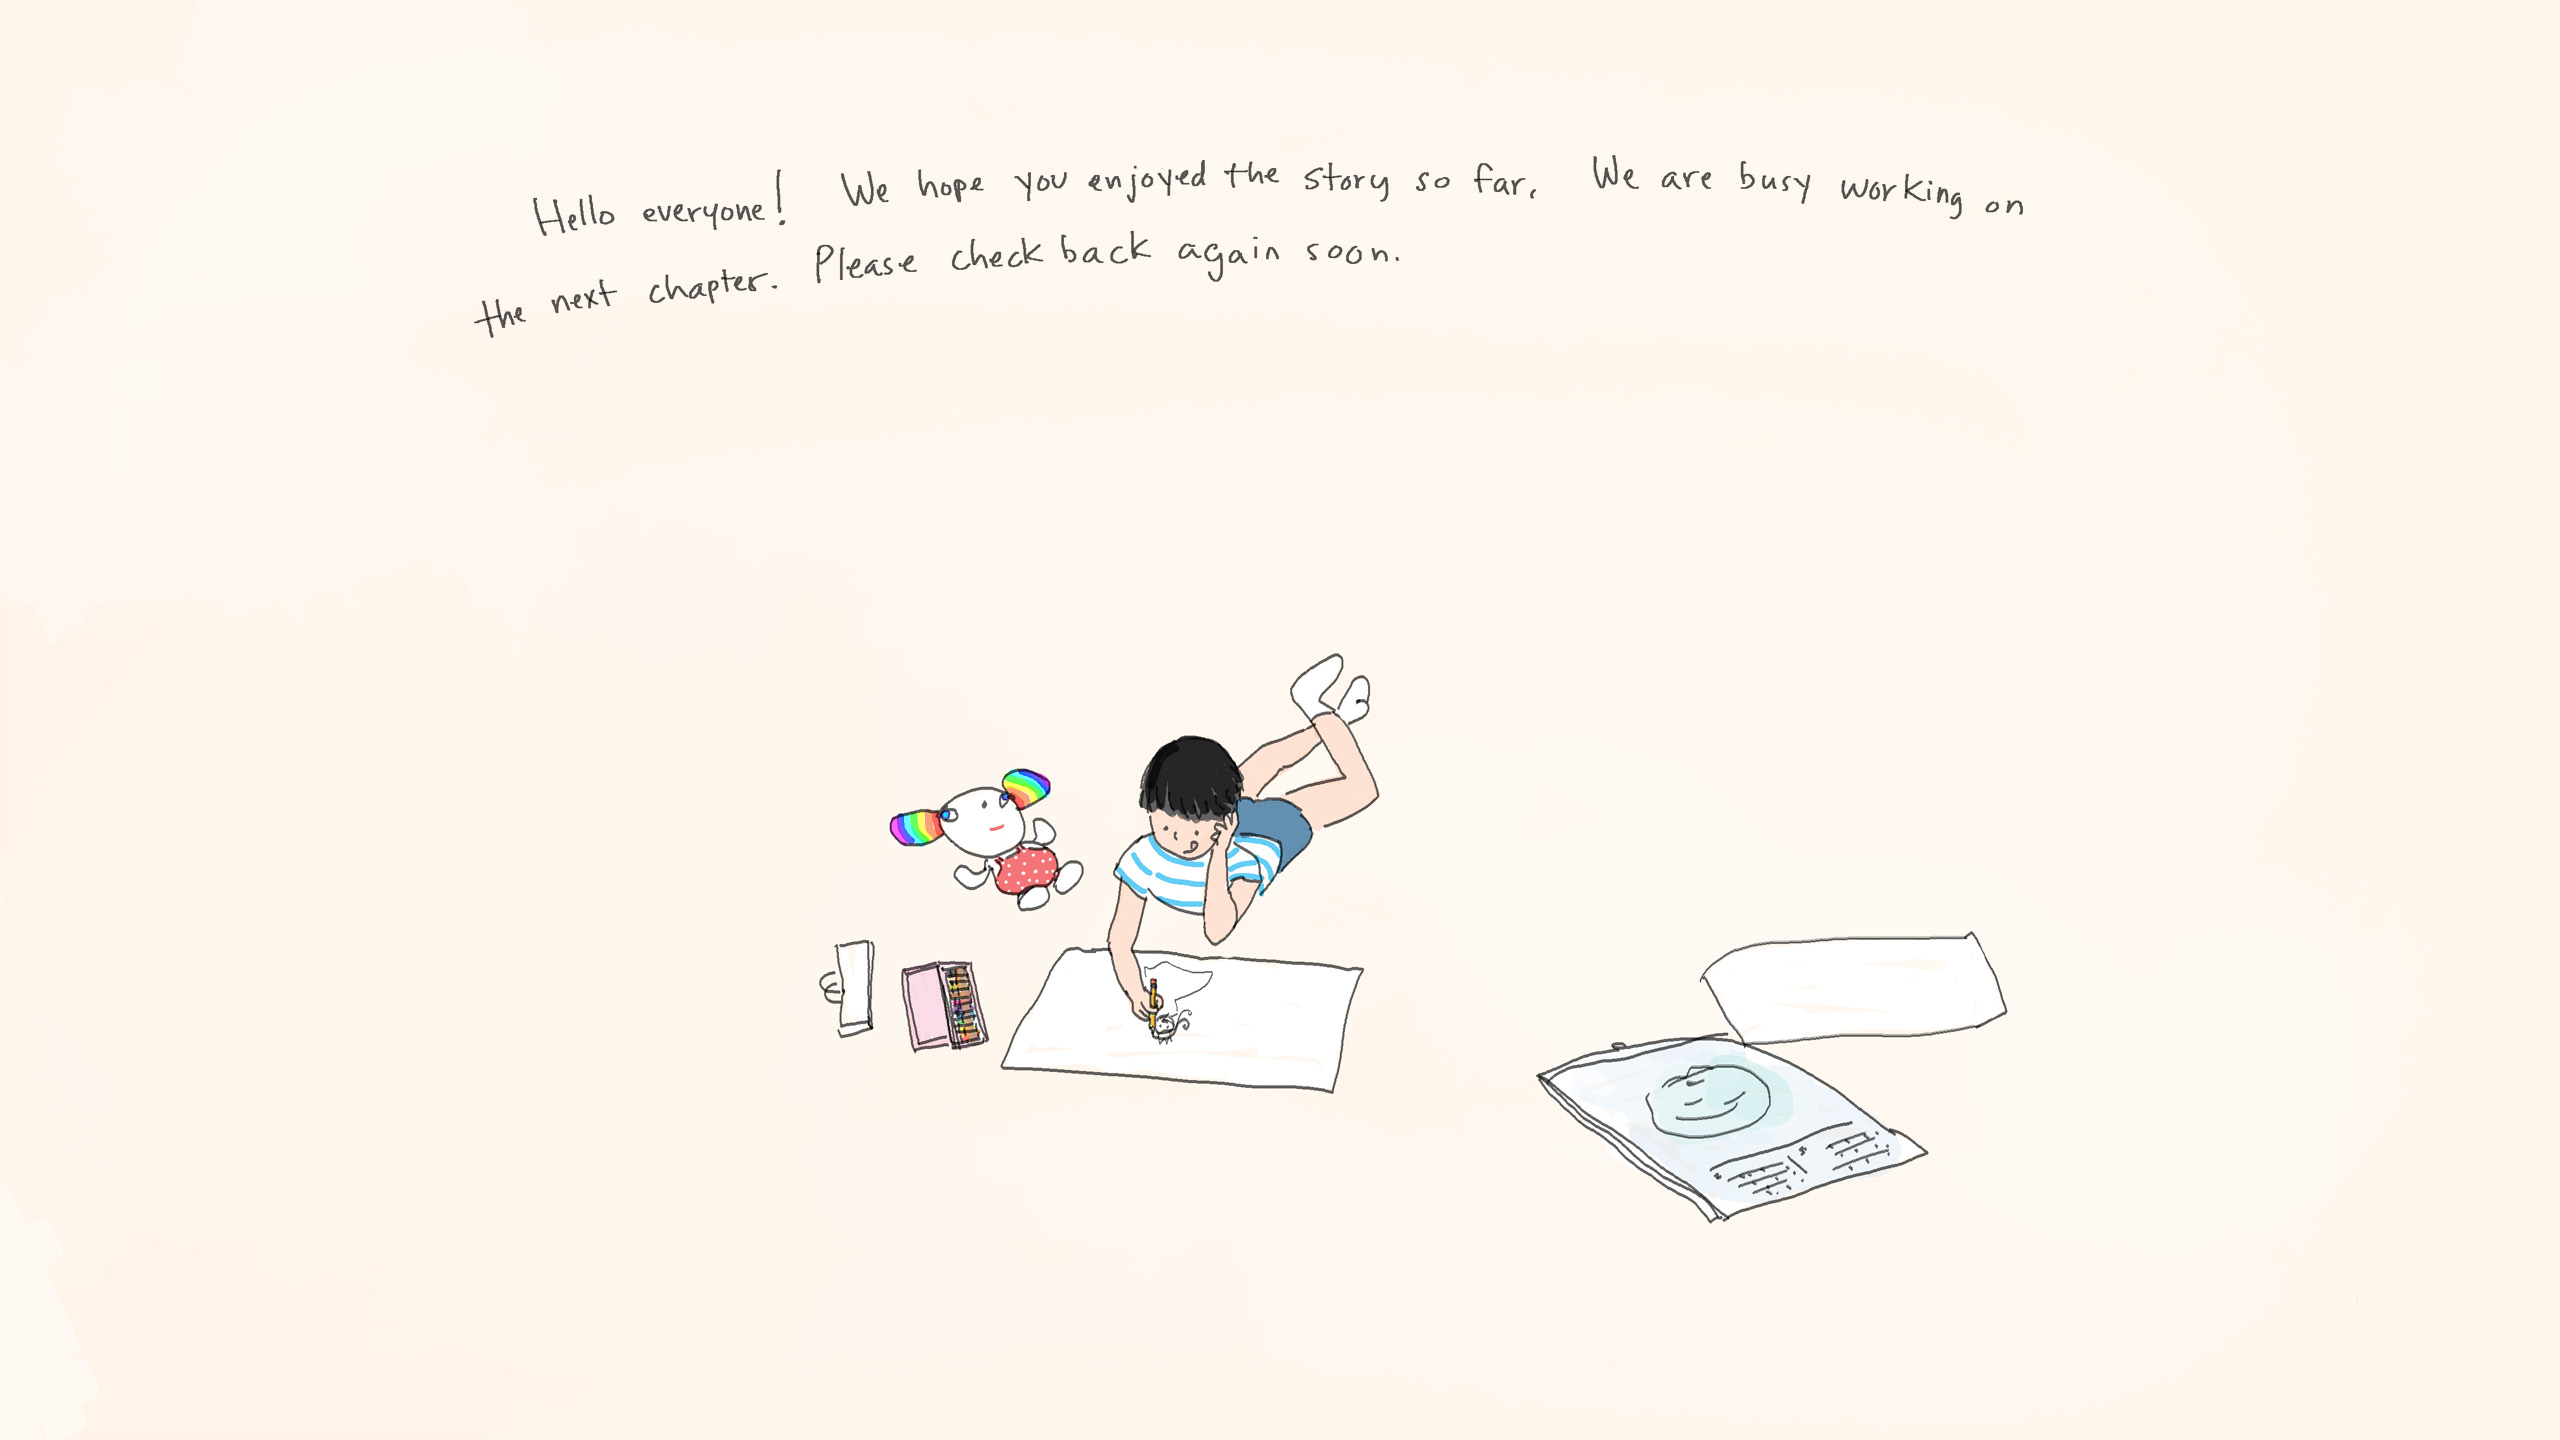 Hello everyone! We hope you enjoyed the story so far. We are busy working on
the next chapter. Please check back again soon.